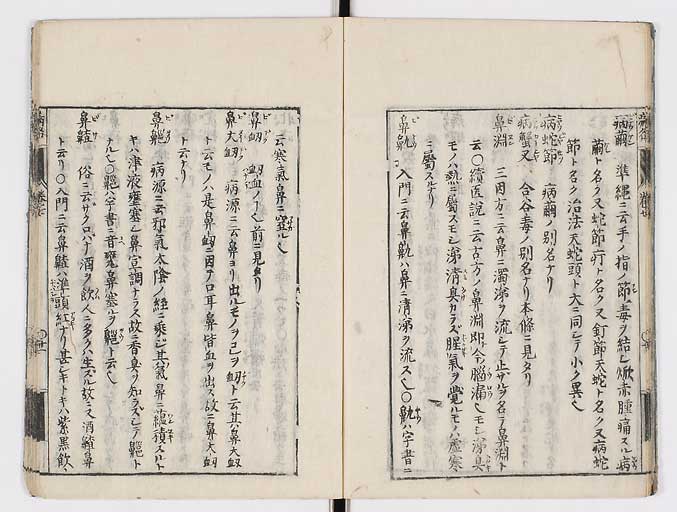 病繭 準縄ニ云手ノ指ノ節毒ヲ結ヒ焮赤腫痛スル病
繭ト名ク又蛇節疔ト名ク又釘節天蛇ト名ク又病蛇
節ト名ク治法天蛇頭ト大ニ同シテ小ク異ヘ
病蛇節 病繭ノ別名ナリ
病蟹叉 合谷毒ノ別名ナリ本條ニ見タリ
鼻淵 三因方ニ云鼻ニ濁涕ヲ流シテ止サヲ名テ鼻淵ト
云〇續医説ニ云古方ノ鼻淵即今ノ腦漏
モノハ熱ニ屬スモシ涕清臭カラズ腥氣ヲ覺ルモノハ虚寒
ニ屬スルナリ
鼻鼽 入門ニ云鼻鼽ハ鼻ニ清涕ヲ流ス〇鼽ハ字書ニ
云寒氣鼻ニ窒ル
鼻衂 衂血ノ 前ニ見タリ
鼻大衂 病源ニ云鼻ヨリ出ルモノヲ 衂ト云其ハ鼻大衂
ト云モノハ是鼻衂ニ因テ口耳鼻皆血ヲ出ス故ニ鼻大衂
ト云ナリ
鼻齆 病源ニ云邪氣太陰ノ經ニ乘シ其氣鼻ニ蘊積スルト
キハ津液壅塞シ鼻宣調ナラス故ニ香臭ヲ知ラズシテ齆ト
ナル〇齆ハ字書ニ音甕鼻塞ルヲ齆ト云
鼻齄 俗ニ云サクロハナ酒ヲ飲人ニ多クハ生スル故ニ又酒齄鼻
ト云リ〇入門ニ云鼻齄ハ準頭紅ナリ甚シキトキハ紫黒飲